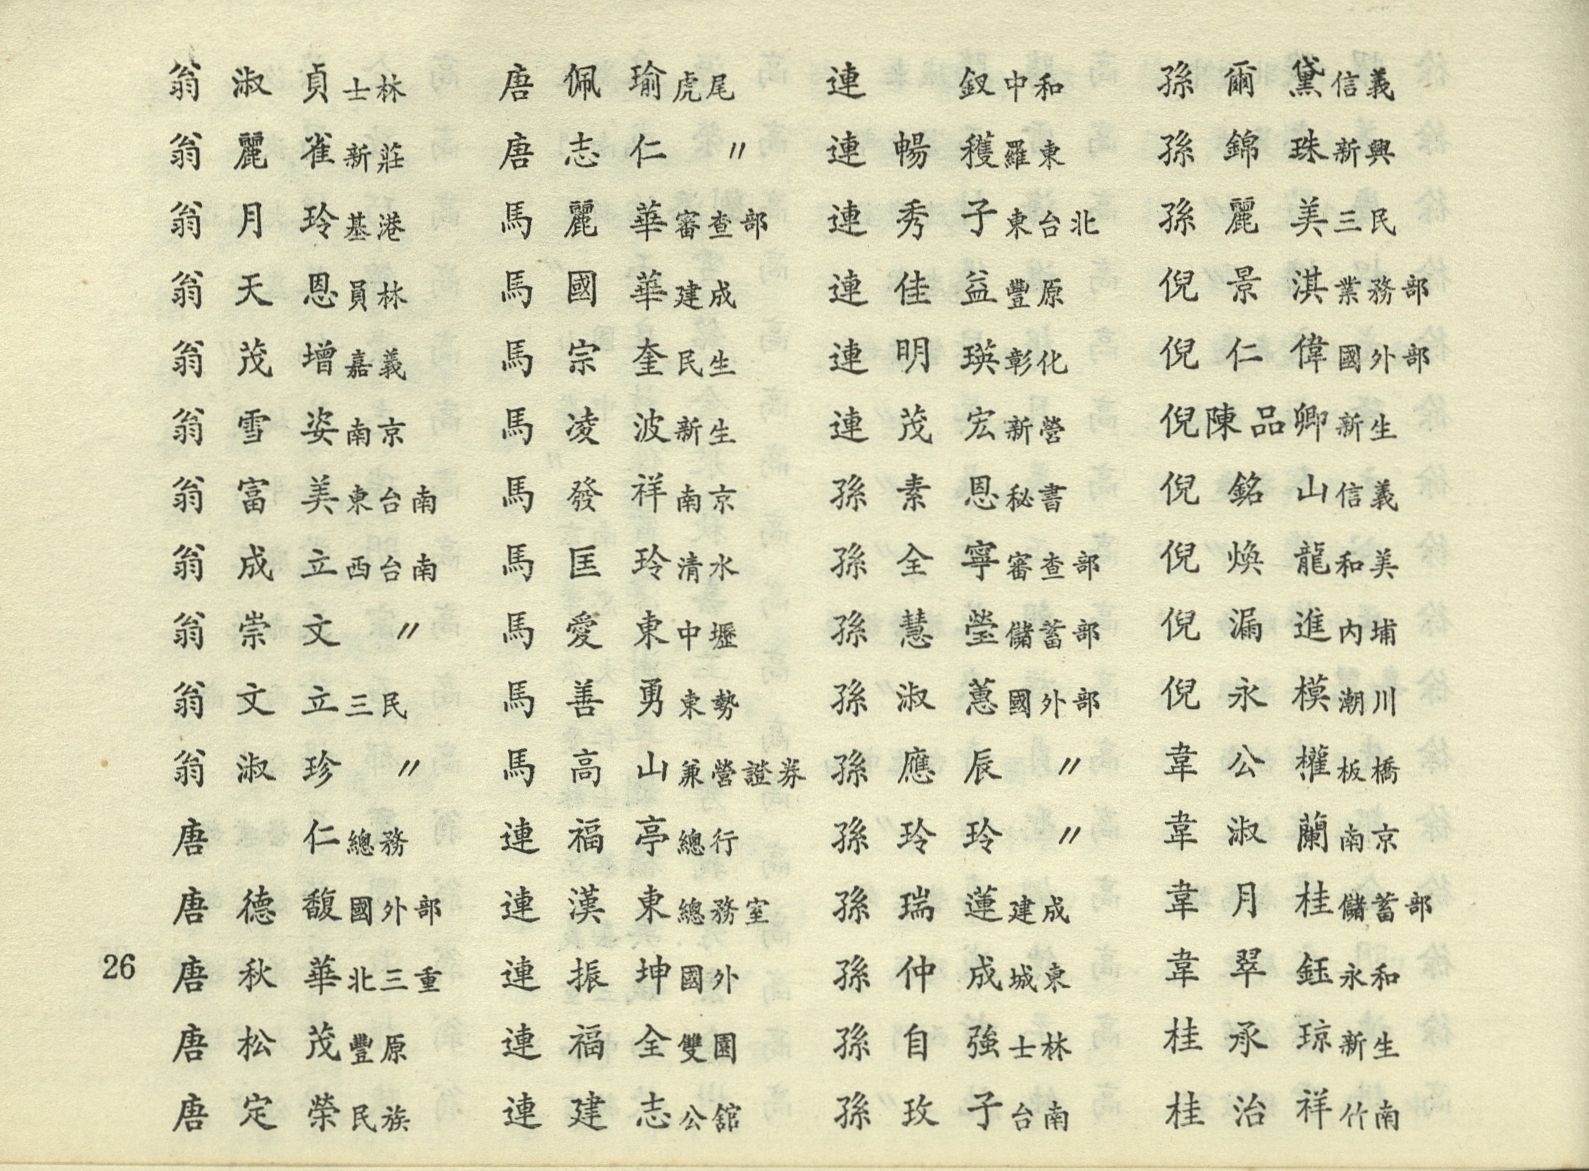 翁淑貞士林
翁麗雀新莊
翁月玲基港
翁天恩員林
翁茂增嘉義
翁雪姿南京
翁富美東台南
翁成立西台南
翁崇文〃
翁文立三民
翁淑珍〃
唐仁總務
唐德馥國外部
26
唐秋華北三重
唐松茂豐原
唐定榮民族
唐佩瑜虎尾
唐志仁〃
馬麗華審查部
馬國華建成
馬宗奎民生
馬凌波新生
馬發祥南京
馬匡玲清水
馬愛東中壢
馬善勇東勢
馬高山兼營證券
連福亭總行
連漢東總務室
連振坤國外
連福全雙園
連建志公舘
連釵中和
連暢穫羅東
連秀子東台北
連佳益豐原
連明瑛彰化
連茂宏新營
孫素恩秘書
孫全寧審查部
孫慧瑩儲蓄部
孫淑蕙國外部
孫應辰〃
孫玲玲〃
孫瑞蓮建成
孫仲成城東
孫自強士林
孫玫子台南
孫爾黛信義
孫錦珠新興
孫麗美三民
倪景淇業務部
倪仁偉國外部
倪陳品卿新生
倪銘山信義
倪煥龍和美
倪漏進內埔
倪永模潮川
韋公權板橋
韋淑蘭南京
韋月桂儲蓄部
韋翠鈺永和
桂承琼新生
桂治祥竹南